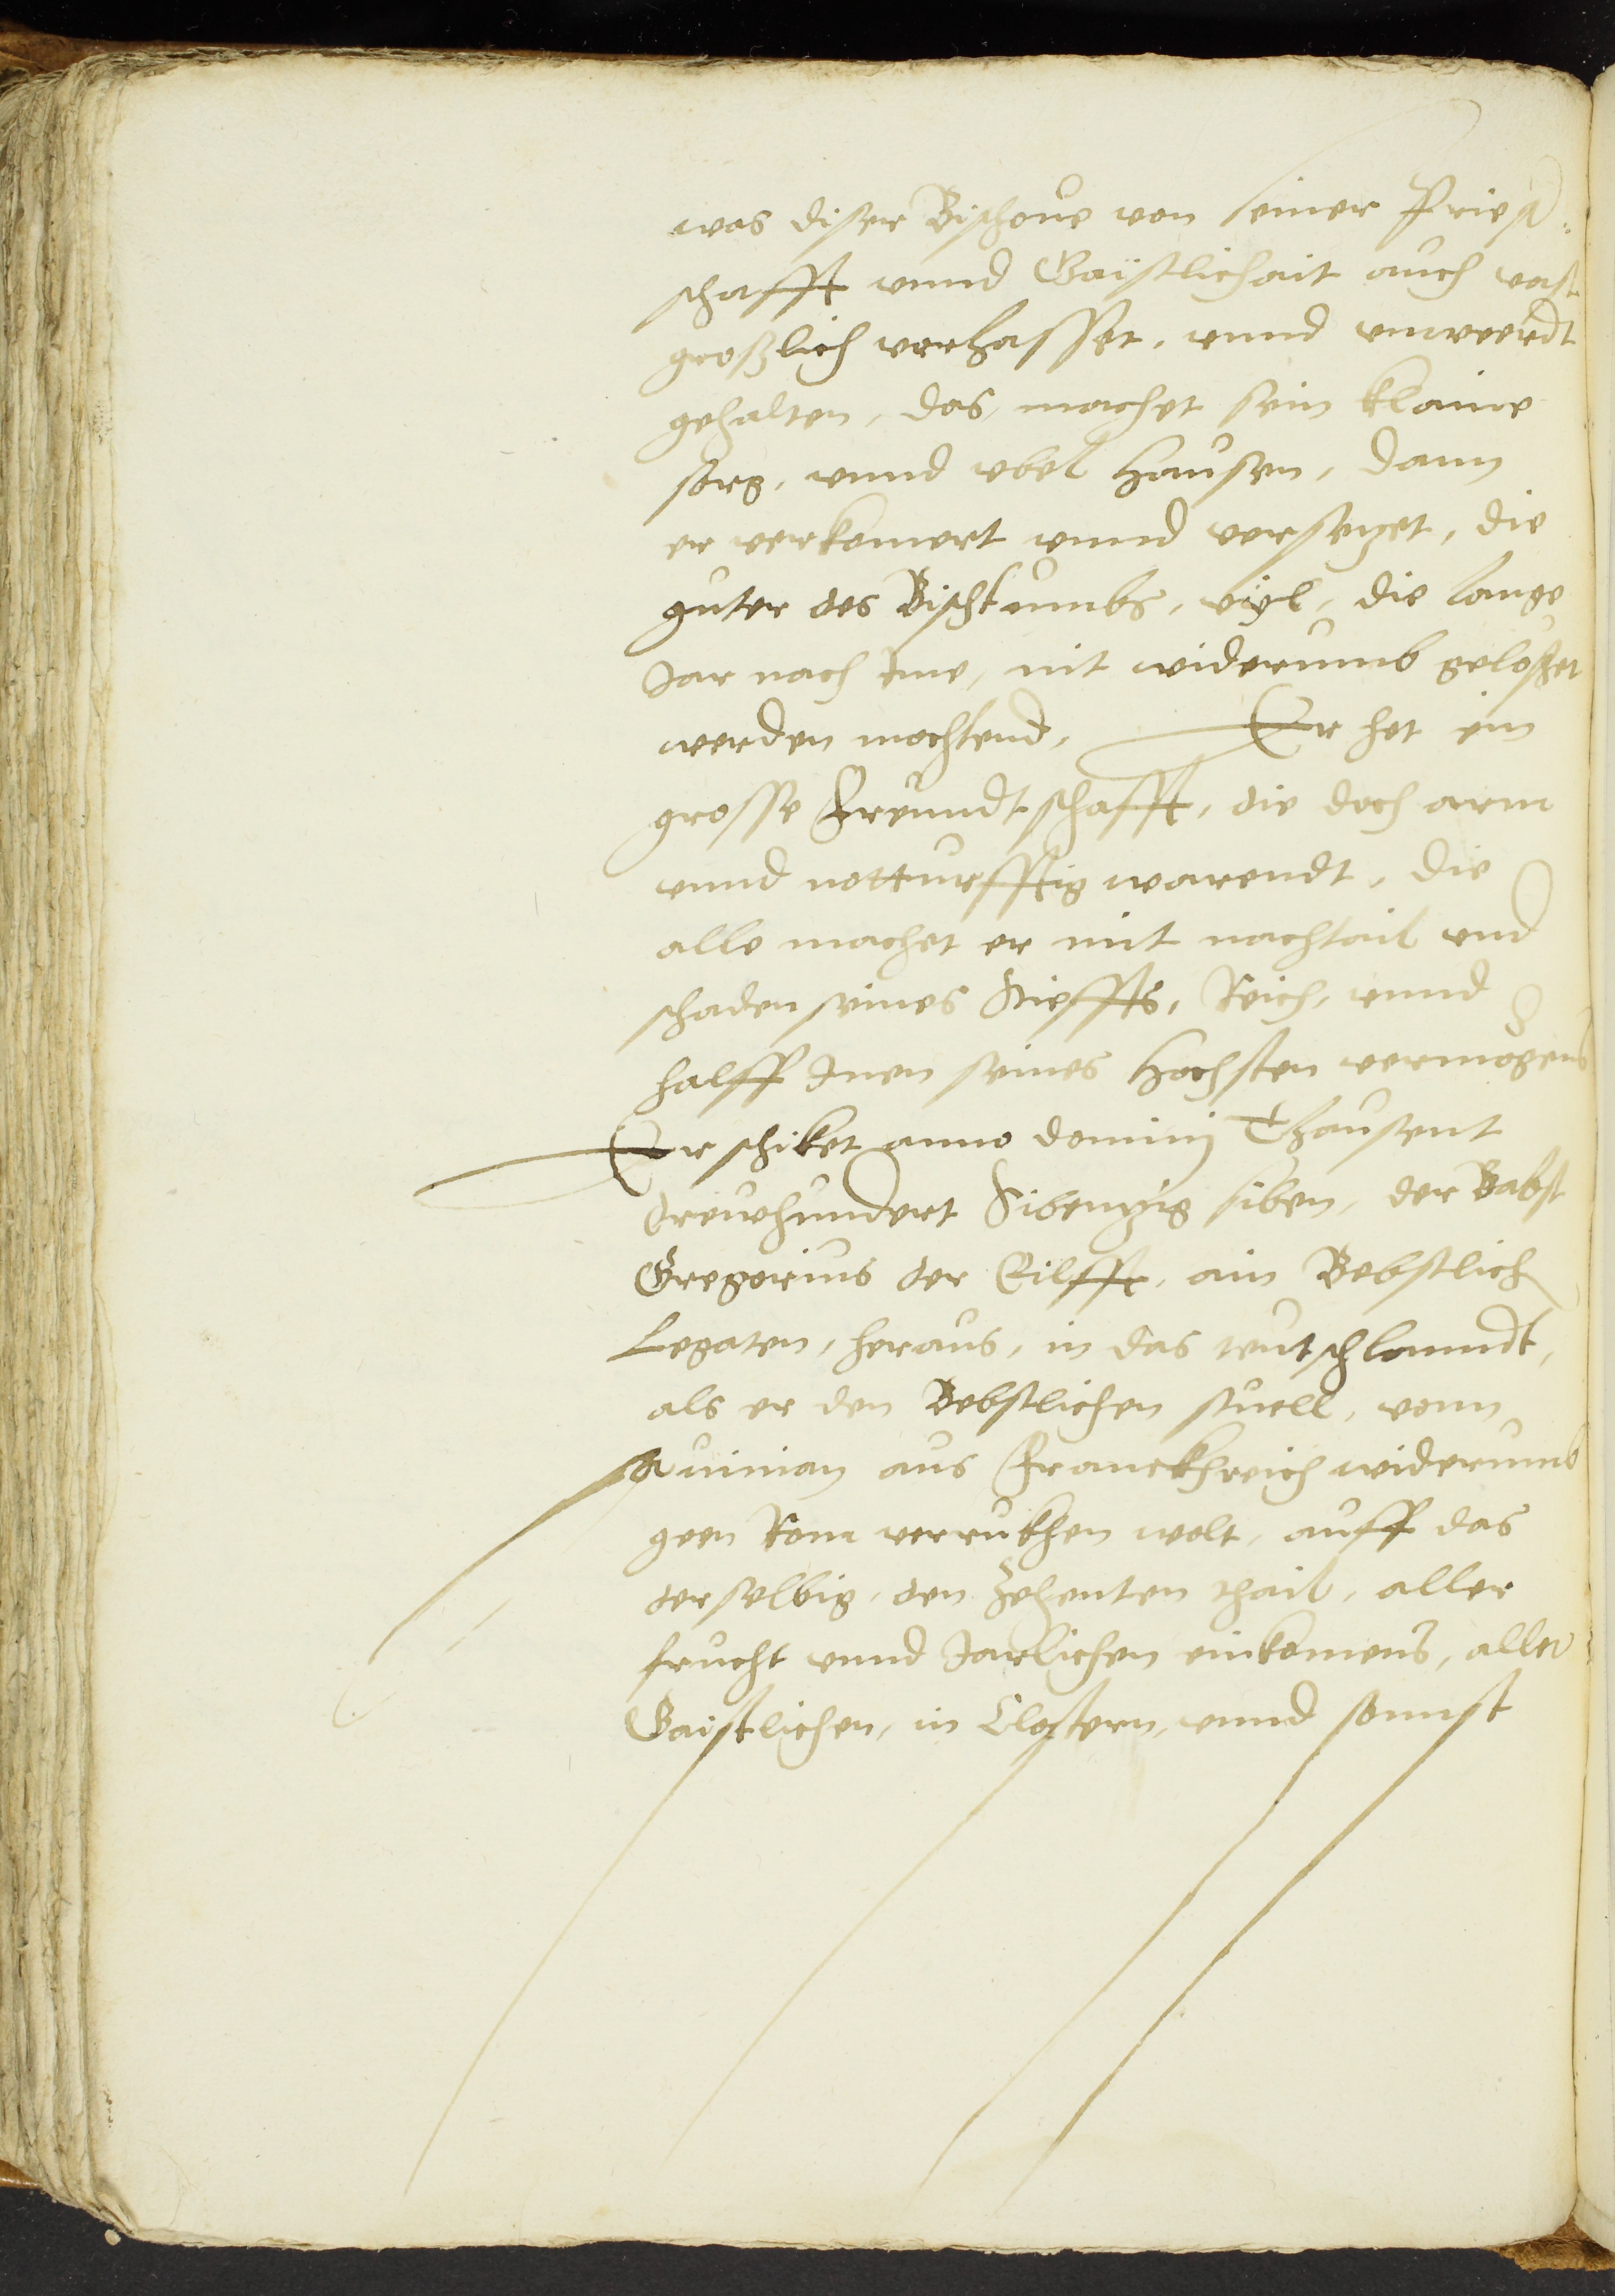 was diser Bischove von seiner Priest¬
schafft unnd Gaÿstlichait auch vast
großlich verhasset, unnd unweerdt
gehalten, das machet sein klaine
sorg, unnd vbel Hausen, dann
er verkomert unnd versezet, die
guter des Bischtumbs, vÿl, die lange
Jar nach Ime, nit widerumb gelosßet
werden mochtend, Er het ein
grosse Freundtschafft, die doch arm
unnd notturfftig warendt, die
alle machet er mit nachtail und
schaden seines Stieffts, Reich, unnd
halff Inen seines Hochsten vermögens
Er schiket anno dominj Thausent
dreuehundert Sibenzig siben, der Babst
Gregorius der Eilfft, ain Bebstlich
Legaten, heraus, in das teutschlanndt,
als er den Bebstlichen stuell, vonn
Avinian aus Franckhreich widerumb
geen Rom verrukhen wolt, auff das
derselbig, den Zehenten thail, aller
frucht unnd Jarlichen einkomens, aller
Gaistlichen, in Clostern, unnd sonnst